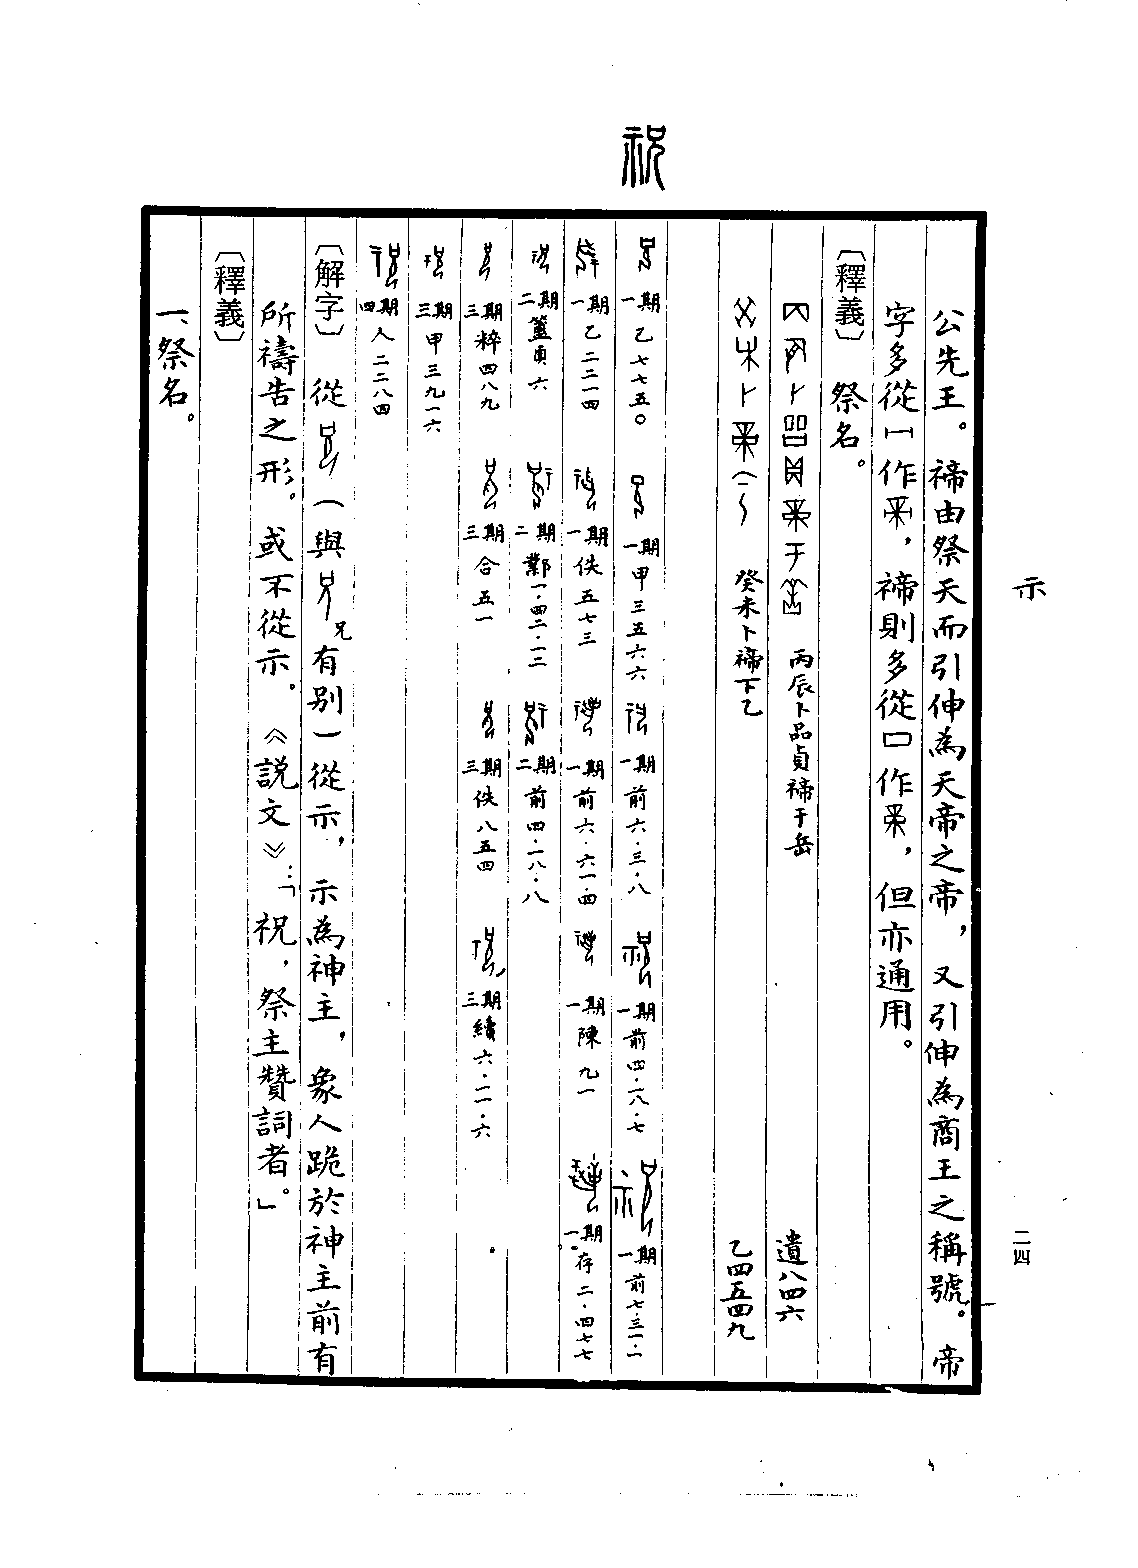 祝
示
二四
公先王。禘由祭天而引伸為天帝之帝，又引伸為商王之稱號。帝
字多從一作，禘則多從口作，但亦通用。
〔釋義〕祭名。
丙辰卜品貞禘于岳 遺八四六
癸未卜禘下乙 乙四五四九
一期乙七七五〇 一期甲三五六六 一期前六·三·八 一期前四·一八·七 一期前七·三一·一
一期乙二二一四 一期佚五七三 一期前六·六一·四 一期陳九一 一期存二·四七七
二期簠貞六 二期鄴一·四二·一三 二期前四·一八·八
三期粹四八九 三期合五一 三期佚八五四 三期續六·一一·六
三期甲三九一六
四期人二二八四
〔解字〕從（與兄有別）從示，示為神主，象人跪於神主前有
所禱告之形。或不從示。《説文》：「祝，祭主贊詞者。」
〔釋義〕
一、祭名。